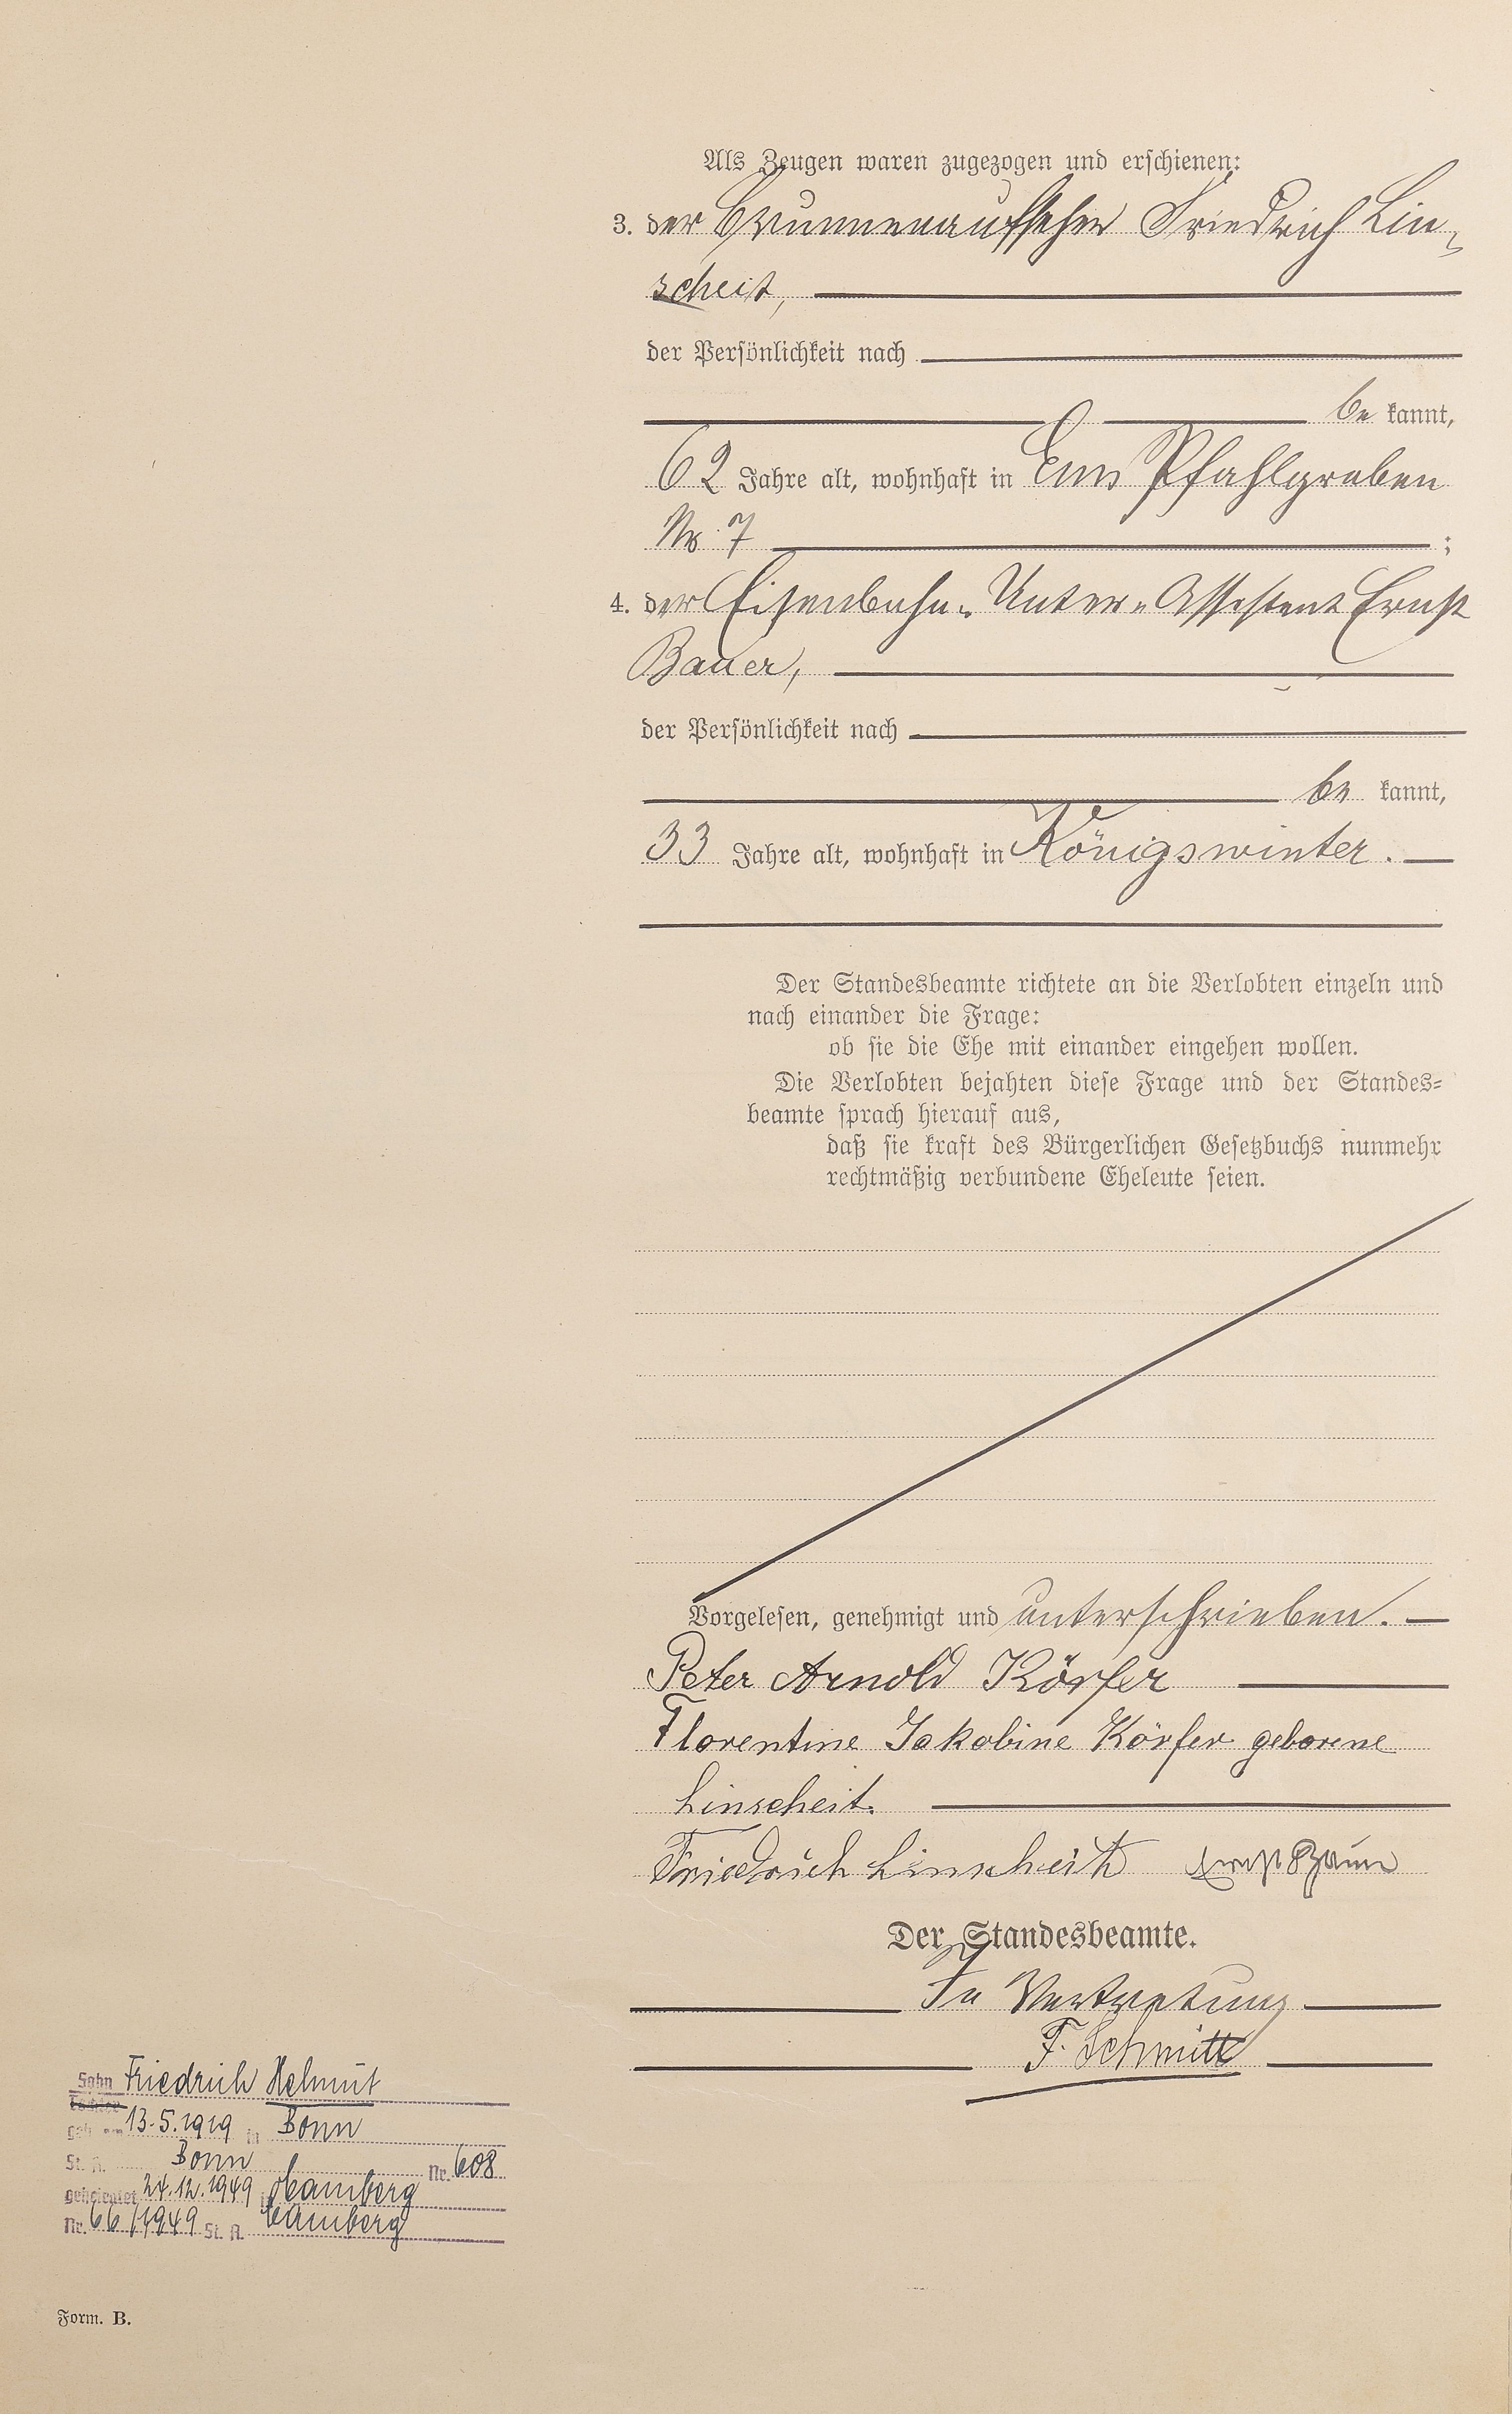 Als Zeugen waren zugezogen und erschienen:
3. der Brunnenaufseher Friedrich Lin-
scheit,
der Persönlichkeit nach
be kannt,
62 Jahre alt, wohnhaft in Ems Pfahlgraben
No 7 ;
4. der Eisenbahn-Unter-Assistent Ernst
Bauer,
der Persönlichkeit nach
be kannt,
33 Jahre alt, wohnhaft in Königswinter.
Der Standesbeamte richtete an die Verlobten einzeln und
nach einander die Frage:
ob sie die Ehe mit einander eingehen wollen.
Die Verlobten bejahten diese Frage und der Standes-
beamte sprach hierauf aus,
daß sie kraft des Bürgerlichen Gesetzbuchs nunmehr
rechtmäßig verbundene Eheleute seien.
Vorgelesen, genehmigt und unterschrieben.
Peter Arnold Körfer
Florentine Jakobine Körfer geborene
Linscheit.
Friedrich Linscheit Ernst Bauer
Der Standesbeamte.
In Vertretung
F. Schmitt
Sohn Friedrich Helmut
Tochter
geb. am 13.5.1919 in Bonn
St. A. Bonn Nr. 608
geheiratet 24.12.1949 in Bamberg
Nr. 66/1949 St. A. Bamberg
Form. B.